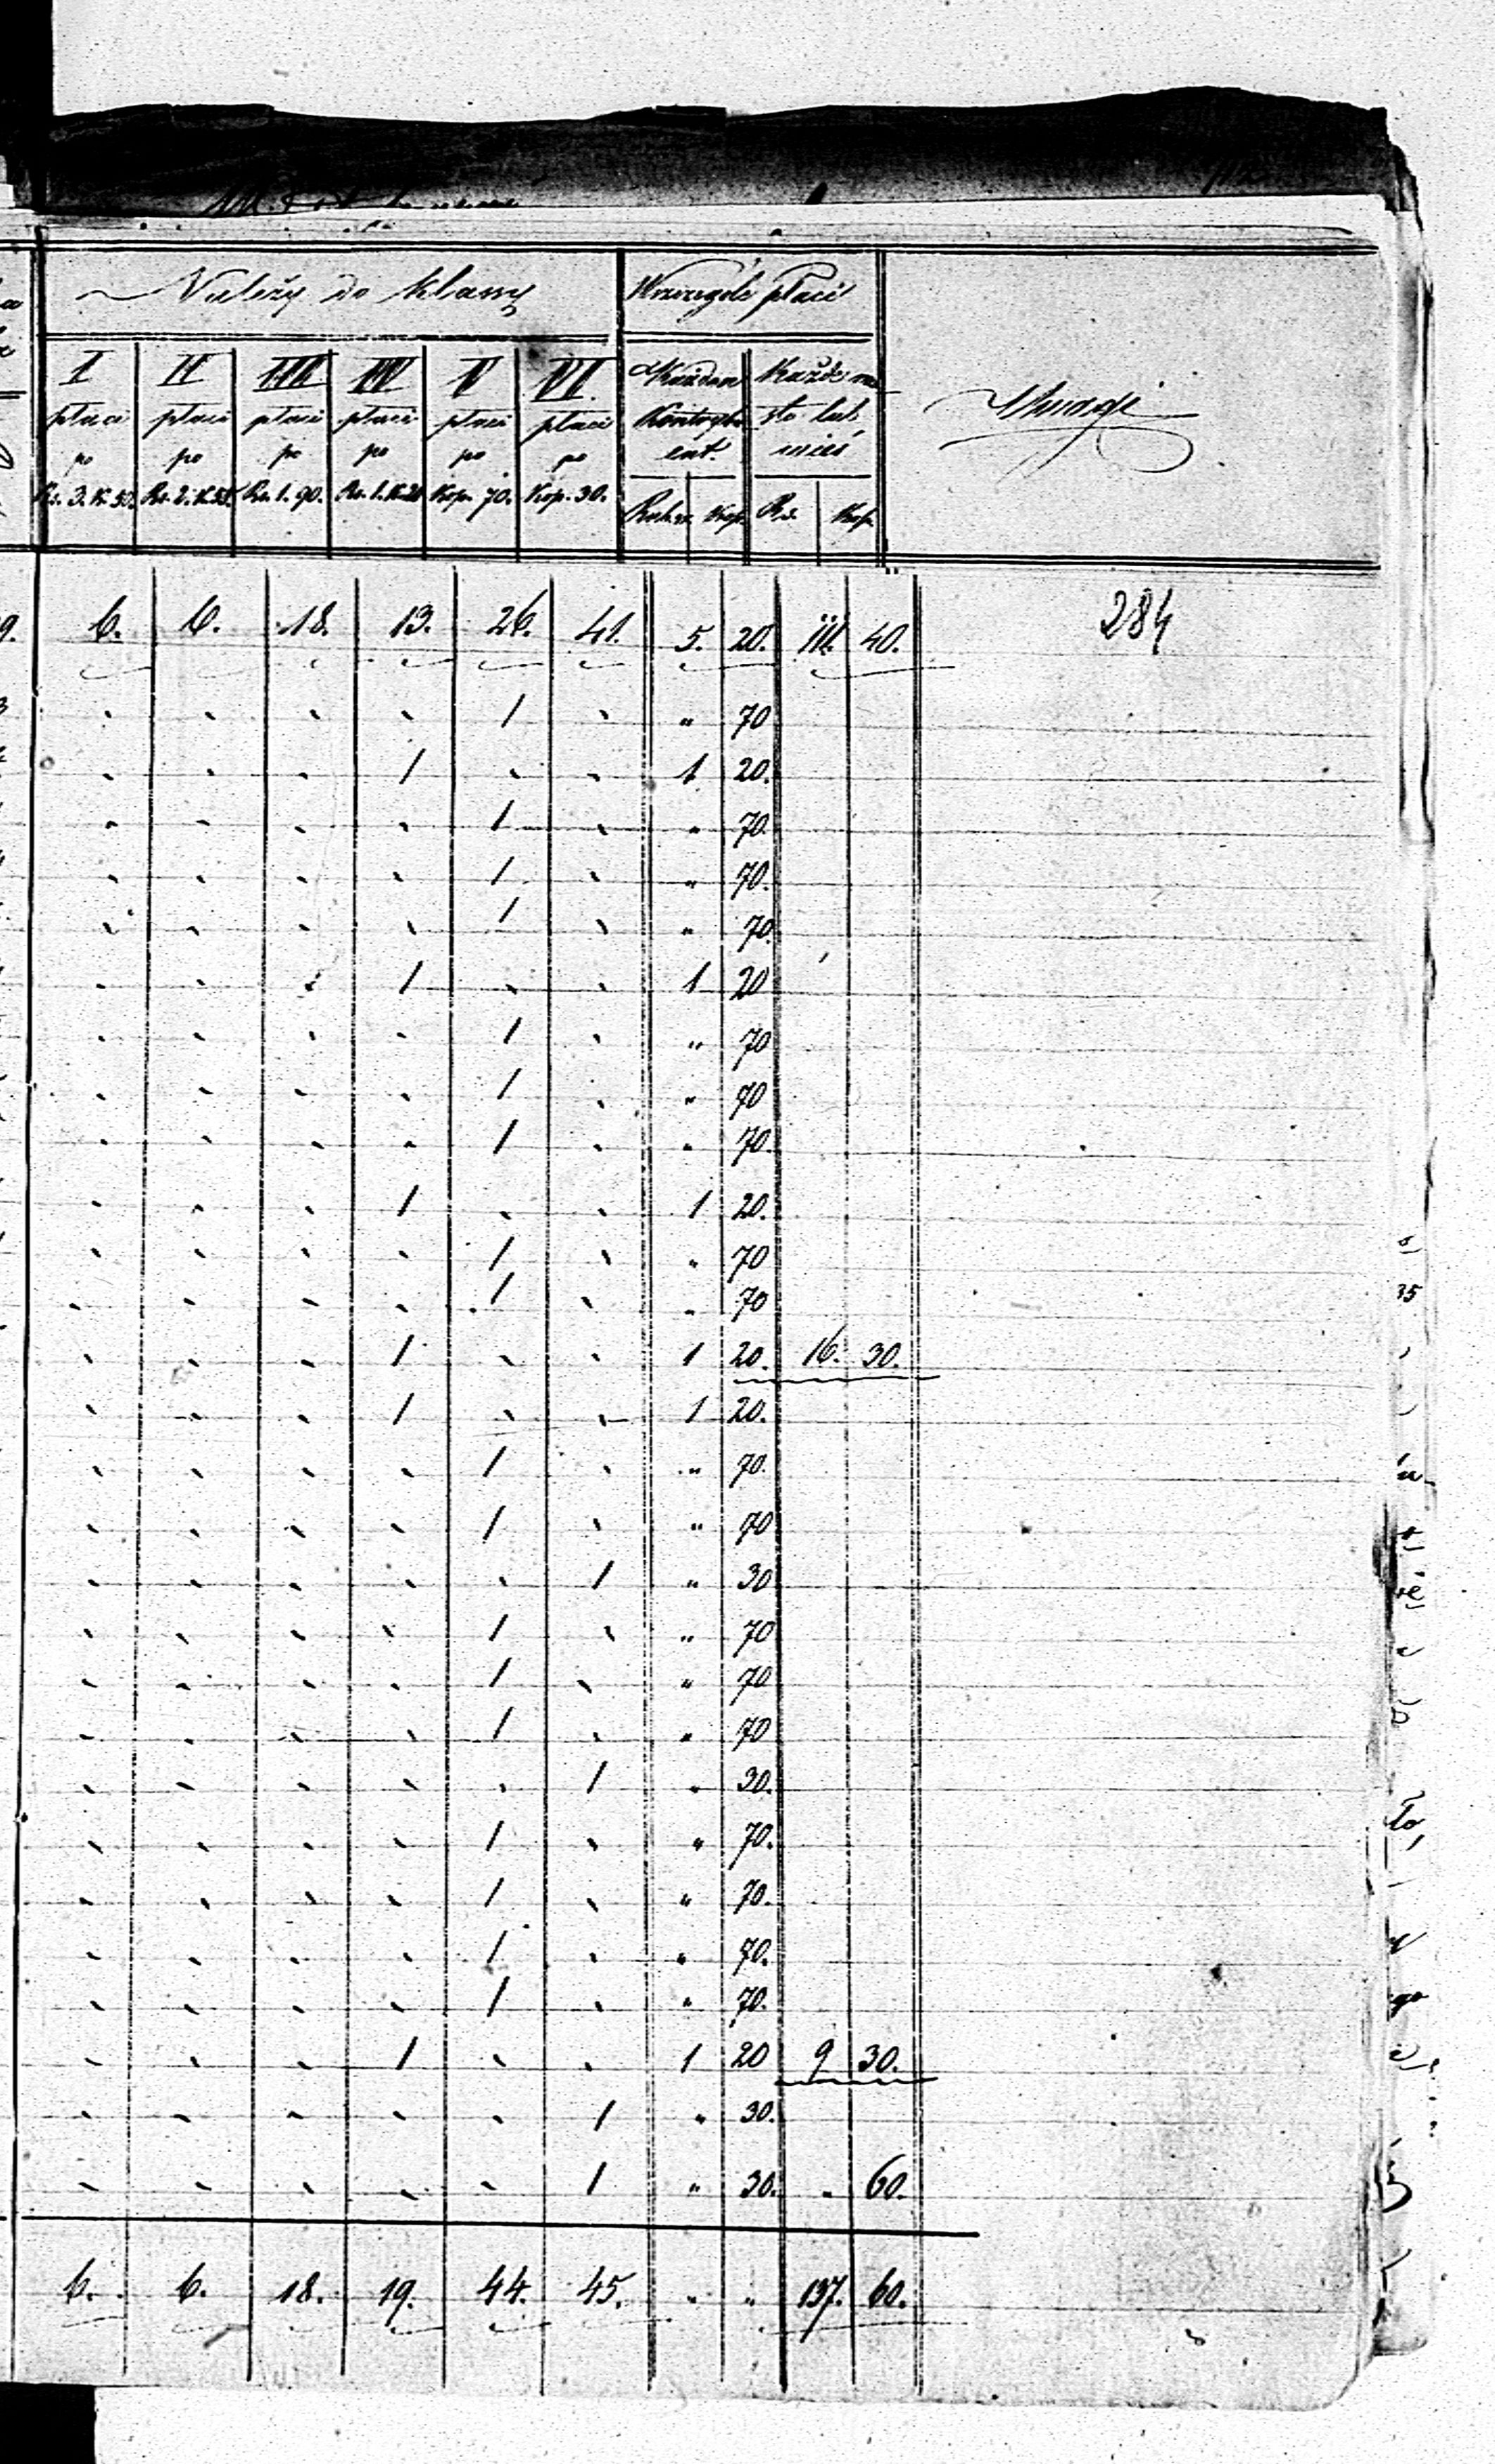 Należy do klassy
W szczególe płaci
I II III IV V VI.
płaci płaci płaci płaci płaci płaci
po po po po po po
Rs. 3. K. 50. Rs. 2. K. 55. Rs. 1. 90. Rs. 1. K. 20 Kop. 70. Kop. 30.
Każden Kontrybuent.
Każde miasto lub wieś
Rub. sr. Kop. Rs. Kop.
Uwagi
9. 6. 6. 18. 13. 26. 41. 5. 20. 111. 40. 284
1 " 70
1 1 20.
1 " 70.
1 " 70.
1 " 70.
1 1 20
1 " 70
1 " 70
1 " 70.
1 1 20.
1 " 70
1 " 70
1 1 20. 16. 30.
1 1 20.
1 " 70.
1 " 70
1 " 30
1 " 70
1 " 70
1 " 70
1 " 30.
1 " 70.
1 " 70.
1 " 70.
1 " 70.
1 1 20 9 30.
1 " 30.
1 " 30. " 60.
6. 6. 18. 19. 44. 45. " " 137. 60.